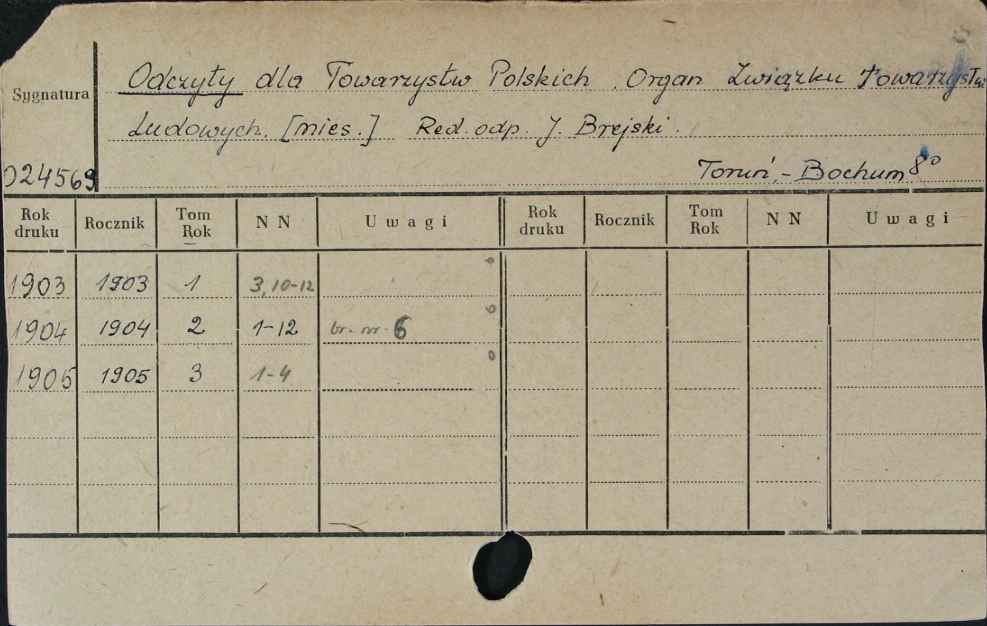 Sygnatura
Odczyty dla Towarzystw Polskich. Organ Związku Towarzystw
Ludowych. [mies.] Red. odp. J. Brejski.
024569
Toruń,-Bochum 8°
Rok druku Rocznik Tom Rok N N Uwagi Rok druku Rocznik Tom Rok N N Uwagi
1903 1903 1 3, 10-12
1904 1904 2 1-12 br. nr. 6
1905 1905 3 1-4